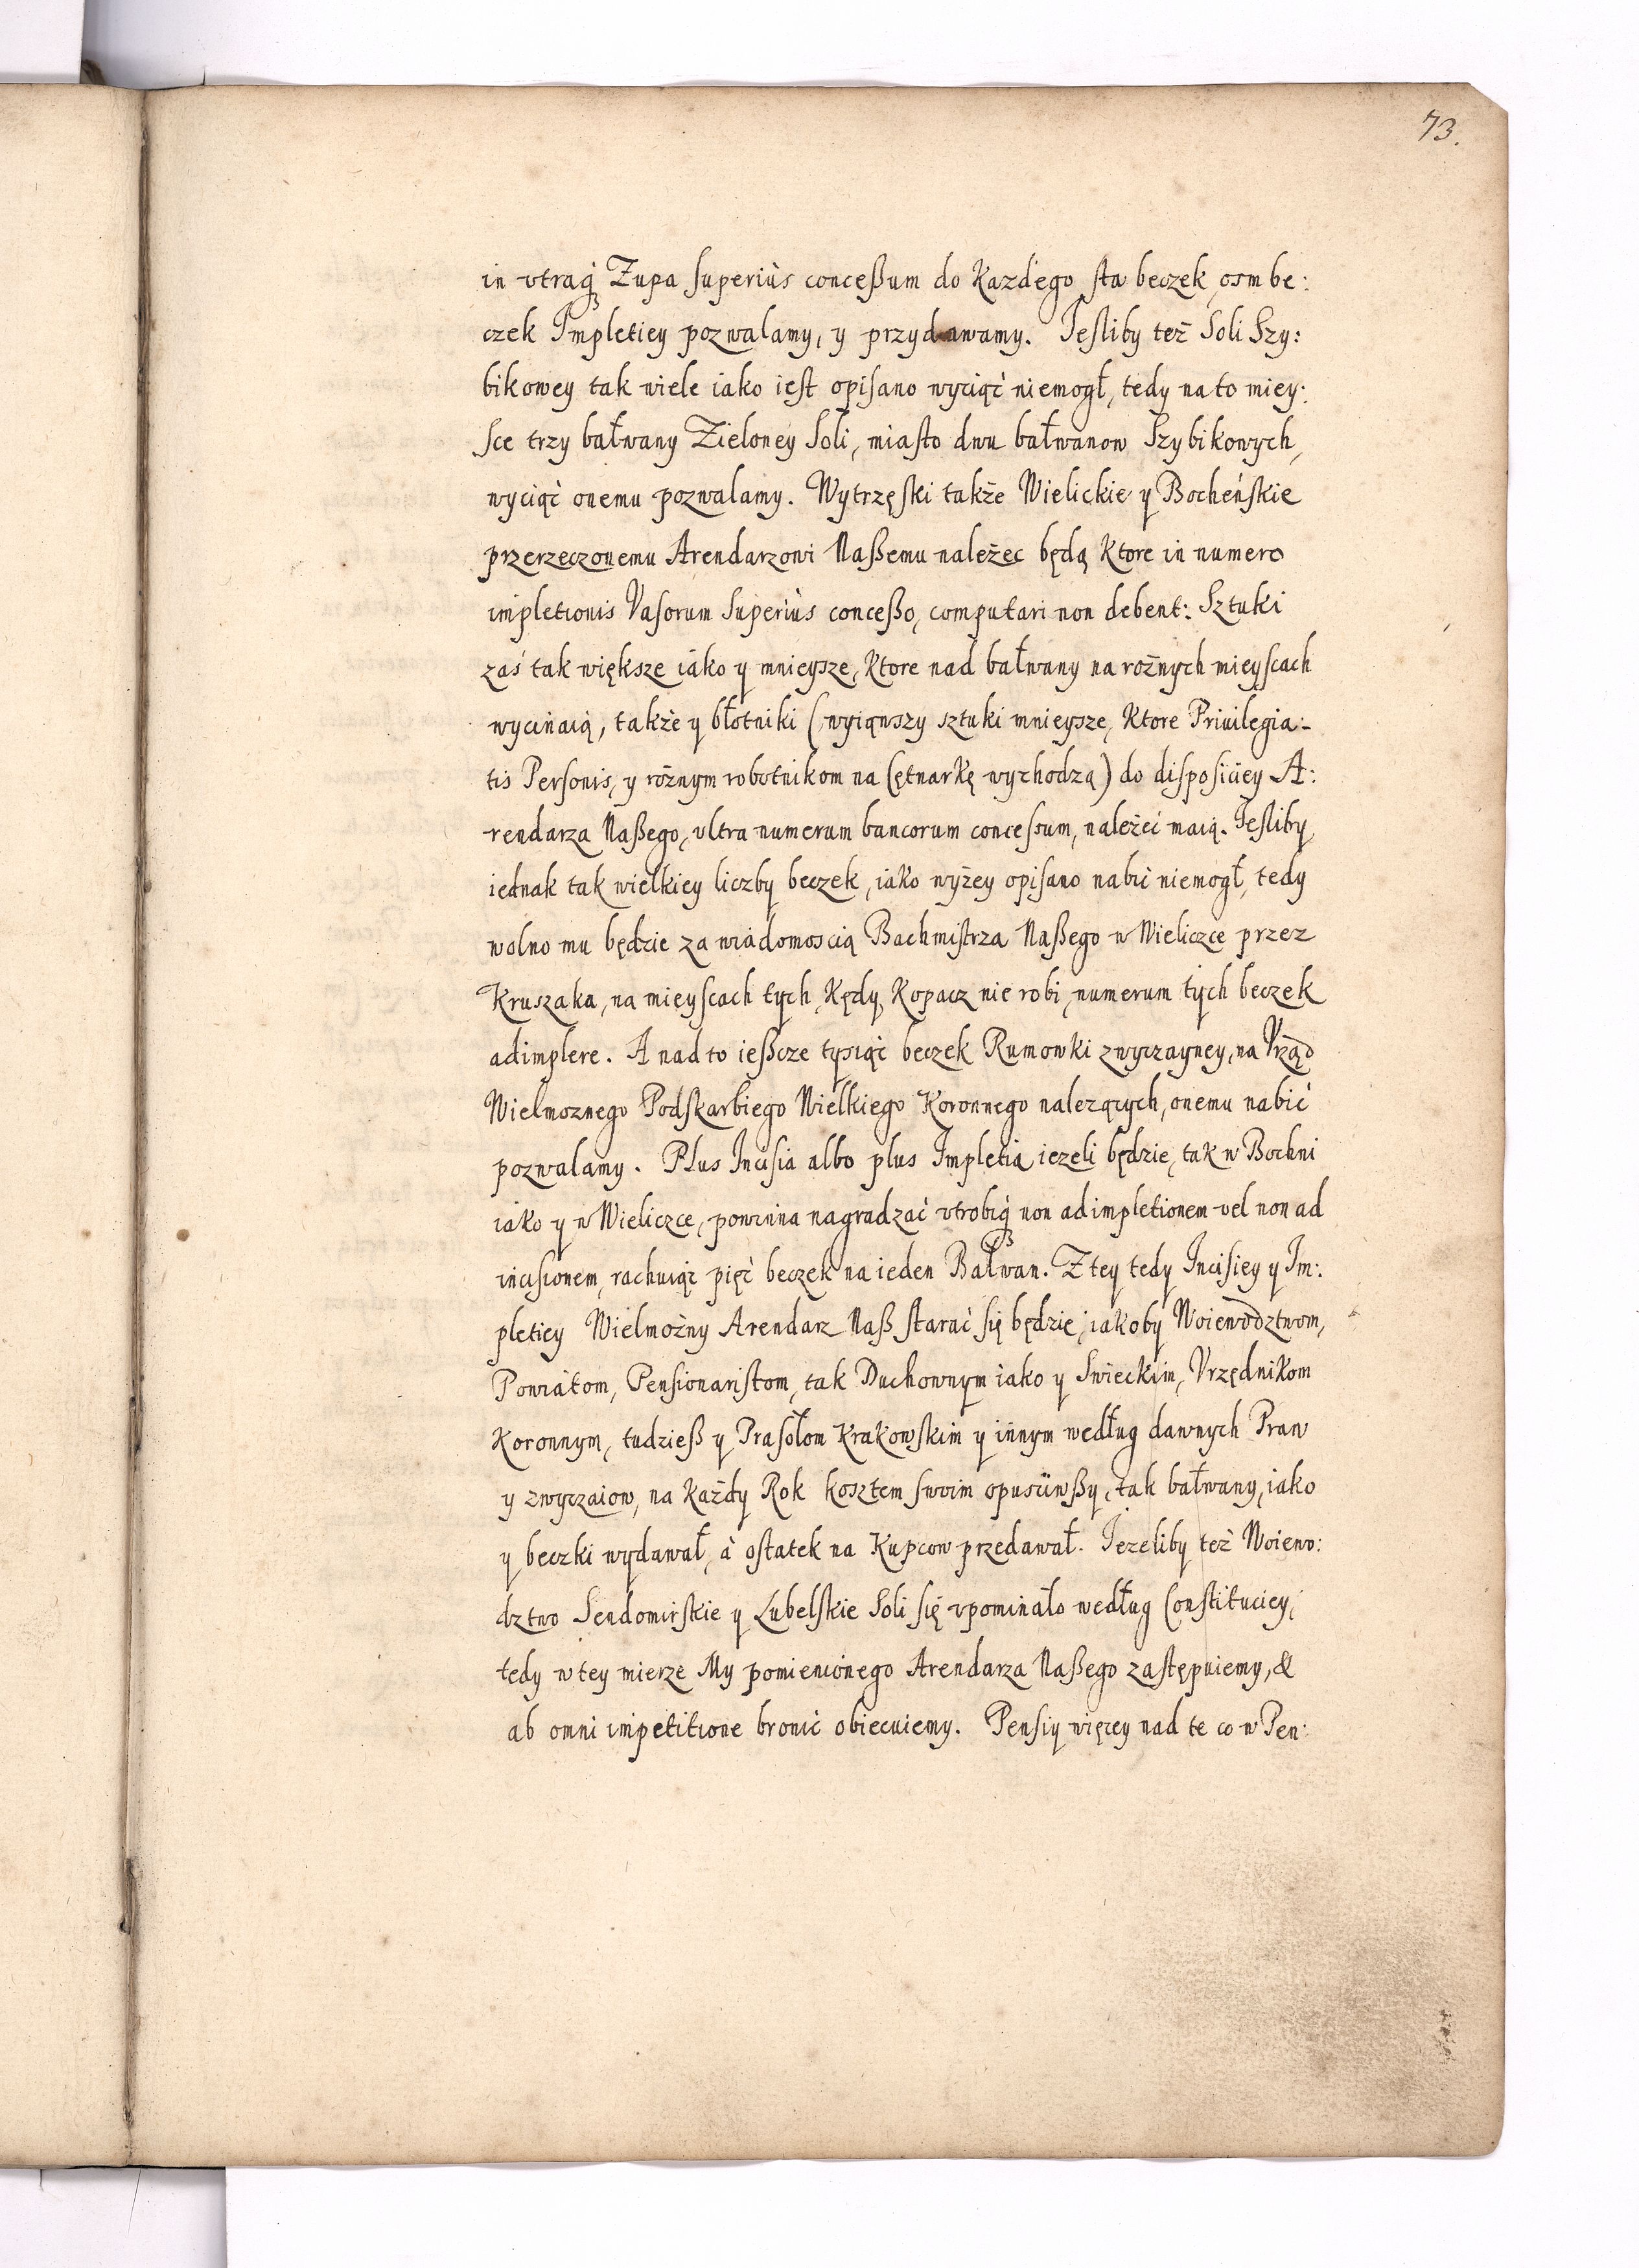 73.
in vtraq₃ Zupa superiùs conceßum do Kazdego sta beczek osm be:
czek Impletiey pozwalamy, y przydawamy. Iesliby też Soli Szy:
bikowey tak wiele iako iest opisano wyciąć niemogł, tedy na to miey:
sce trzy bałwany Zieloney Soli, miasto dwu bałwanow Szybikowych,
wyciąć onemu pozwalamy. Wytrzęski także Wielickie y Bocheńskie
przerzeczonemu Arendarzowi Naßemu należec będą Ktore in numero
impletionis Vasorum Superiùs conceßo, computari non debent: Sztuki
zaś tak większe iáko y mnieysze, Ktore nad bałwany na rożnych mieyscach
wycinaią, także y błotniki (wyiąwszy sztuki mnieysze, Ktore Priuilegia:
tis Personis, y rożnym robotnikom na Cętnarkę wychodzą) do disposiciey A:
rendarza Naßego, vltra numerum bancorum concessum, należeć maią. Iesliby
iednak tak wielkiey liczby beczek, iako wyżey opisano nabić niemogł, tedy
wolno mu będzie za wiádomoscią Bachmistrza Naßego w Wieliczce przez
Kruszaka, na mieyscach tych Kędy Kopacz nie robi, numerum tych beczek
adimplere. A nad to ießcze tysiąć beczek Rumowki zwyczayney, na Vrząd
Wielmoznego Podskarbiego Wielkiego Koronnego nalezących, onemu nabić
pozwalamy. Plus Incisia albo plus Impletia iezeli będzie, tak w Bochni
iako y w Wieliczce, powinna nagradzać vtrobiq₃ non ad impletionem vel non ad
incisionem, rachuiąc pięć beczek na ieden Bałwan. Z tey tedy Incisiey y Im:
pletiey Wielmożny Arendarz Naß starać się będzie, iakoby Woiewodztwom,
Powiátom, Pensionaristom, tak Duchownym iako y Swieckim, Vrzędnikom
Koronnym, tudzieß y Prasołom Krakowskim y innym według dawnych Praw
y zwyczaiow, na Każdy Rok kosztem swoim opusciwßy, tak bałwany, iako
y beczki wydawał, à ostatek na Kupcow przedawał. Iezeliby też Woiewo:
dztwo Sendomirskie y Lubelskie Soli się vpominało według Constituciey,
tedy w tey mierze My pomienionego Arendarza Naßego zastępuiemy, &
ab omni impetitione bronić obiecuiemy. Pensiy więcey nad te co w Pen: